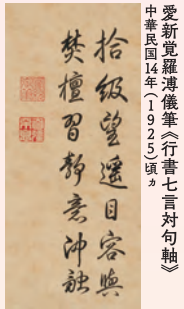 愛新覚羅溥儀筆《行書七言対句軸》
中華民国14年(1925)頃ヵ
拾級望遥目容与
焚檀習静意沖融